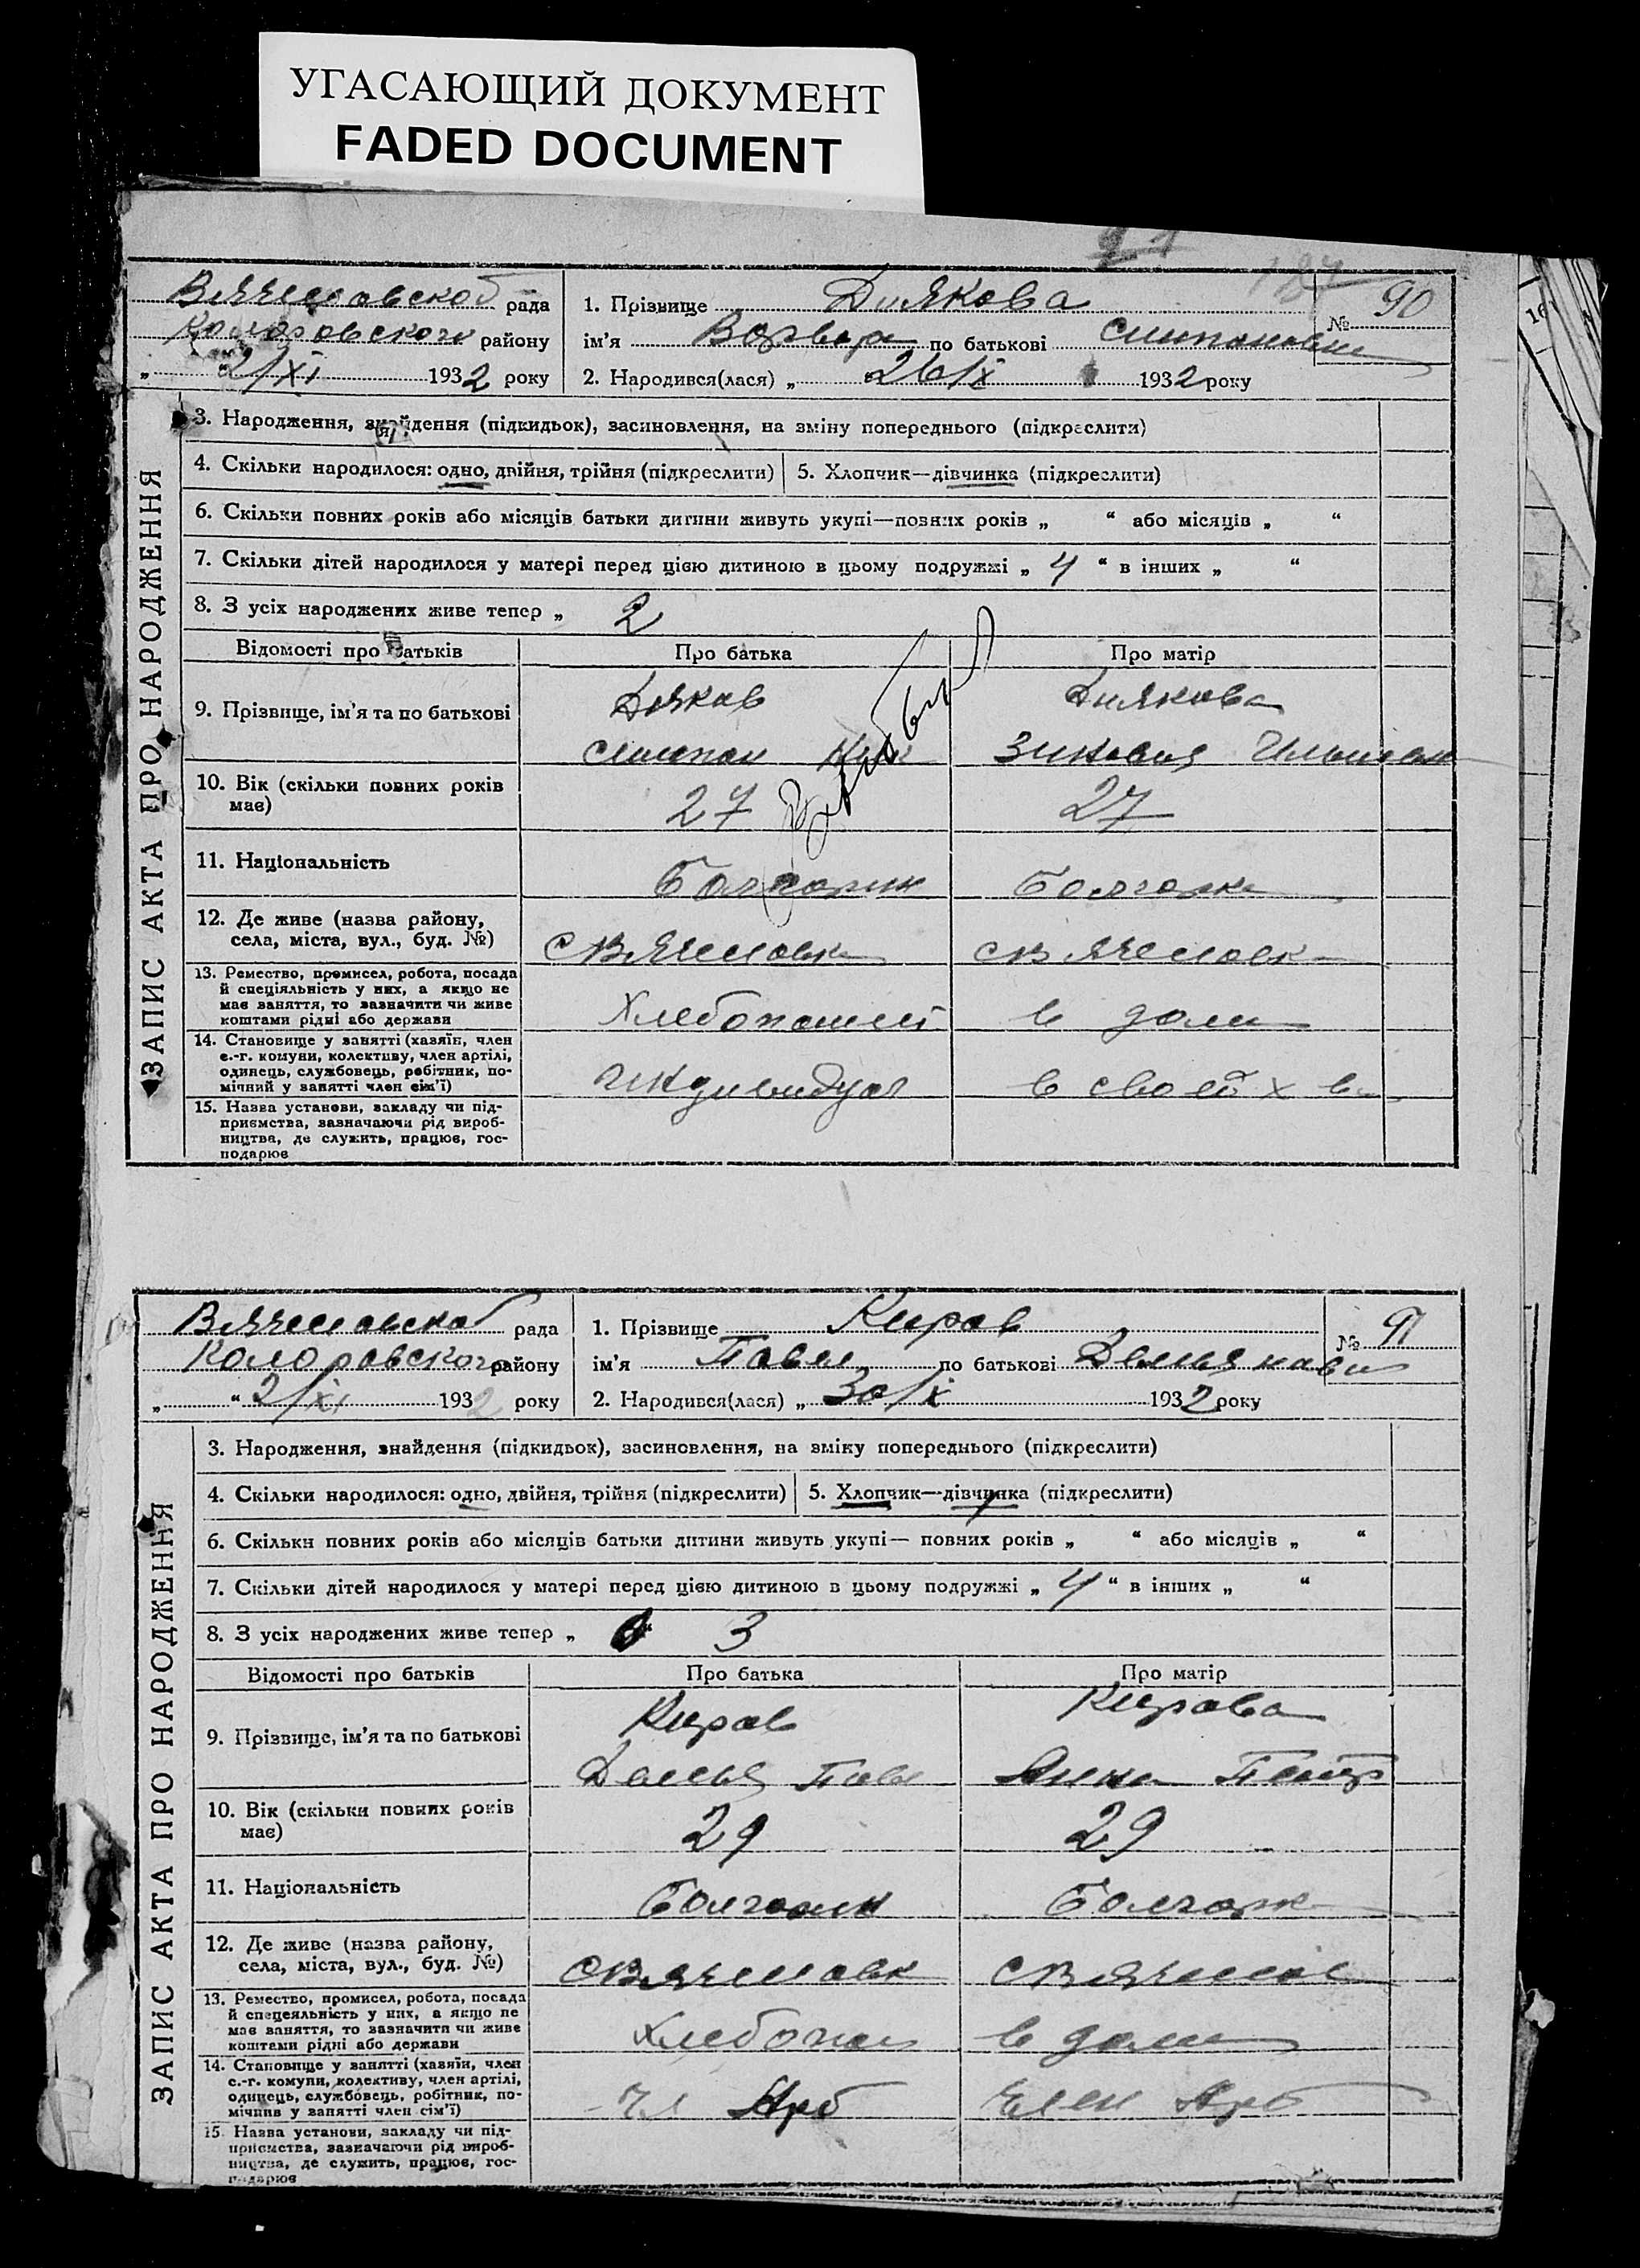 УГАСАЮЩИЙ ДОКУМЕНТ
FADED DOCUMENT
рада
району
„ 2/XI 1932 року
1. Прізвище Диякова
№ 90
ім'я Варвара по батькові
2. Народився(лася) „ 26/X 1932 року
ЗАПИС АКТА ПРО НАРОДЖЕННЯ
3. Народження, знайдення (підкидьок), засиновлення, на зміну попереднього (підкреслити)
4. Скільки народилося: одно, двійня, трійня (підкреслити)
5. Хлопчик—дівчинка (підкреслити)
6. Скільки повних років або місяців батьки дитини живуть укупі—повних років „ “ або місяців „ “
7. Скільки дітей народилося у матері перед цією дитиною в цьому подружжі „ 4 “ в інших „ “
8. З усіх народжених живе тепер „ 2
Відомості про батьків
Про батька
Про матір
9. Прізвище, ім'я та по батькові
Дияков
Диякова
10. Вік (скільки повних років
має)
27
27
11. Національність
Болгарин
Болгарка
12. Де живе (назва району,
села, міста, вул., буд. №)
13. Ремество, промисел, робота, посада
й спеціяльність у них, а якщо не
має заняття, то зазначити чи живе
коштами рідні або держави
в доме
14. Становище у занятті (хазяїн, член
с.-г. комуни, колективу, член артілі,
одинець, службовець, робітник, по-
мічний у занятті член сім'ї)
в своей х
15. Назва установи, закладу чи під-
приємства, зазначаючи рід вироб-
ництва, де служить, працює, гос-
подарює
рада
Коларовского району
„ “ 2/XI 1932 року
1. Прізвище Киров
№ 91
ім'я Павел по батькові
2. Народився(лася) „ 30/X 1932 року
ЗАПИС АКТА ПРО НАРОДЖЕННЯ
3. Народження, знайдення (підкидьок), засиновлення, на зміну попереднього (підкреслити)
4. Скільки народилося: одно, двійня, трійня (підкреслити)
5. Хлопчик—дівчинка (підкреслити)
6. Скільки повних років або місяців батьки дитини живуть укупі— повних років „ “ або місяців „ “
7. Скільки дітей народилося у матері перед цією дитиною в цьому подружжі „ 4 “ в інших „ “
8. З усіх народжених живе тепер „ 3
Відомості про батьків
Про батька
Про матір
9. Прізвище, ім'я та по батькові
Киров
Кирова
Демья Пав
Анна Петр
10. Вік (скільки повних років
має)
29
29
11. Національність
Болгарин
Болгарк
12. Де живе (назва району,
села, міста, вул., буд. №)
13. Ремество, промисел, робота, посада
й спецеяльність у них, а якщо не
має заняття, то зазначити чи живе
коштами рідні або держави
в доме
14. Становище у занятті (хазяїн, член
с.-г. комуни, колективу, член артілі,
одинець, службовець, робітник, по-
мічнив у занятті член сім'ї)
Чл Арт
Член Арт
15. Назва установи, закладу чи під-
приємства, зазначаючи рід вироб-
ництва, де служить, працює, гос-
подарює